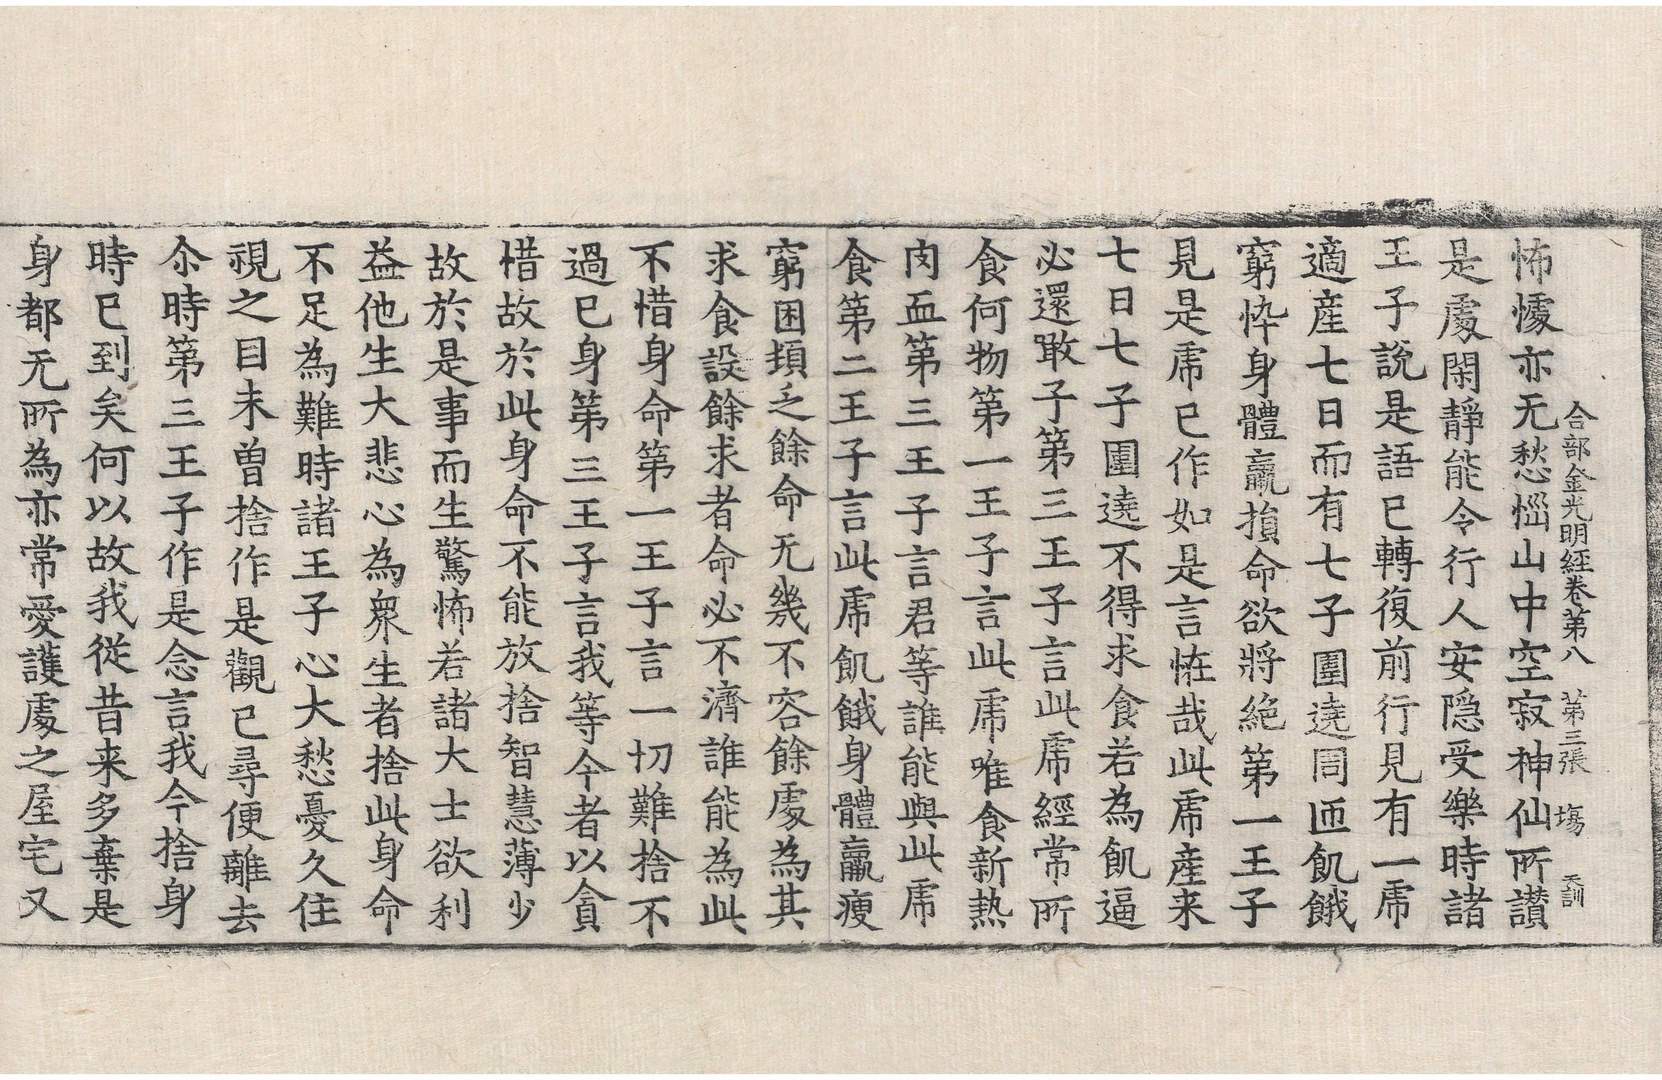 合部金光明經卷第八 第三張 場 天訓
怖懅亦无愁惱山中空寂神仙所讃
是處閑靜能令行人安隠受樂時諸
王子說是語已轉復前行見有一乕
適產七日而有七子圍遶周匝飢餓
窮悴身體羸損命欲將絶第一王子
見是乕已作如是言恠哉此乕產来
七日七子圍遶不得求食若為飢逼
必還噉子第三王子言此乕經常所
食何物第一王子言此乕唯食新熱
肉血第三王子言君等誰能與此乕
食第二王子言此乕飢餓身體羸瘦
窮困頓乏餘命无幾不容餘處為其
求食設餘求者命必不濟誰能為此
不惜身命第一王子言一切難捨不
過已身第三王子言我等今者以貪
惜故於此身命不能放捨智慧薄少
故於是事而生驚怖若諸大士欲利
益他生大悲心為衆生者捨此身命
不足為難時諸王子心大愁憂久住
視之目未曾捨作是觀已尋便離去
尒時第三王子作是念言我今捨身
時已到矣何以故我從昔来多棄是
身都无所為亦常愛護處之屋宅又